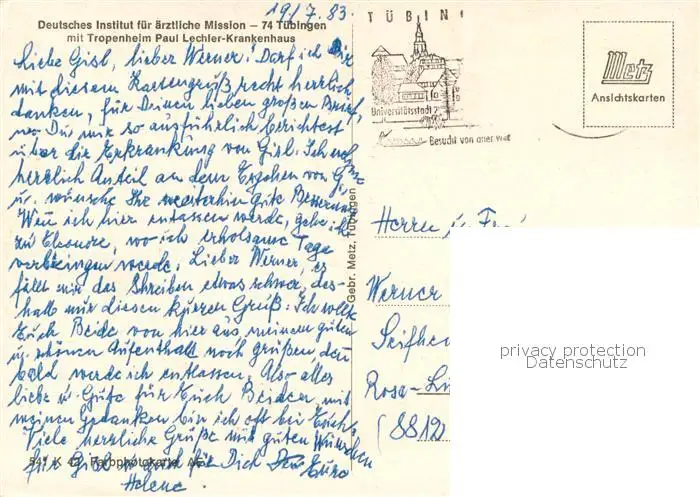 19/7.83.
Deutsches Institut für ärztliche Mission – 74 Tübingen
mit Tropenheim Paul Lechler-Krankenhaus
Liebe Gisl, lieber Werner! Darf ich Dir
mit diesem Kartengruß recht herzlich
danken, für Deinen lieben großen Brief,
wo Du mir so ausführlich berichtest
über die Erkrankung von Gisl. Ich nehme
herzlich Anteil an dem Ergehen von Gisl
u. wünsche Ihr weiterhin gute Besserung.
Wenn ich hier entlassen werde, gehe ich
zu Eleonore, wo ich erholsame Tage
verbringen werde. Lieber Werner, es
fällt mir das Schreiben etwas schwer, des-
halb nur diesen kurzen Gruß. Ich wollte
Euch Beide von hier aus meinem guten
u. schönen Aufenthalt noch grüßen, denn
bald werde ich entlassen. Also alles
liebe u. Gute für Euch Beiden, mit
meinen Gedanken bin ich oft bei Euch.
Viele herzliche Grüße mit guten Wünschen
für Gisl u. auch für Dich Eure
Helene.
541 K 42 Farbphotokarte
Gebr. Metz, Tübingen
TÜBIN
Universitätsstadt
Besucht von aller Welt
Metz
Ansichtskarten
Herrn u. Frau
Werner
Seifhen
Rosa-Lu
(8812)
privacy protection
Datenschutz